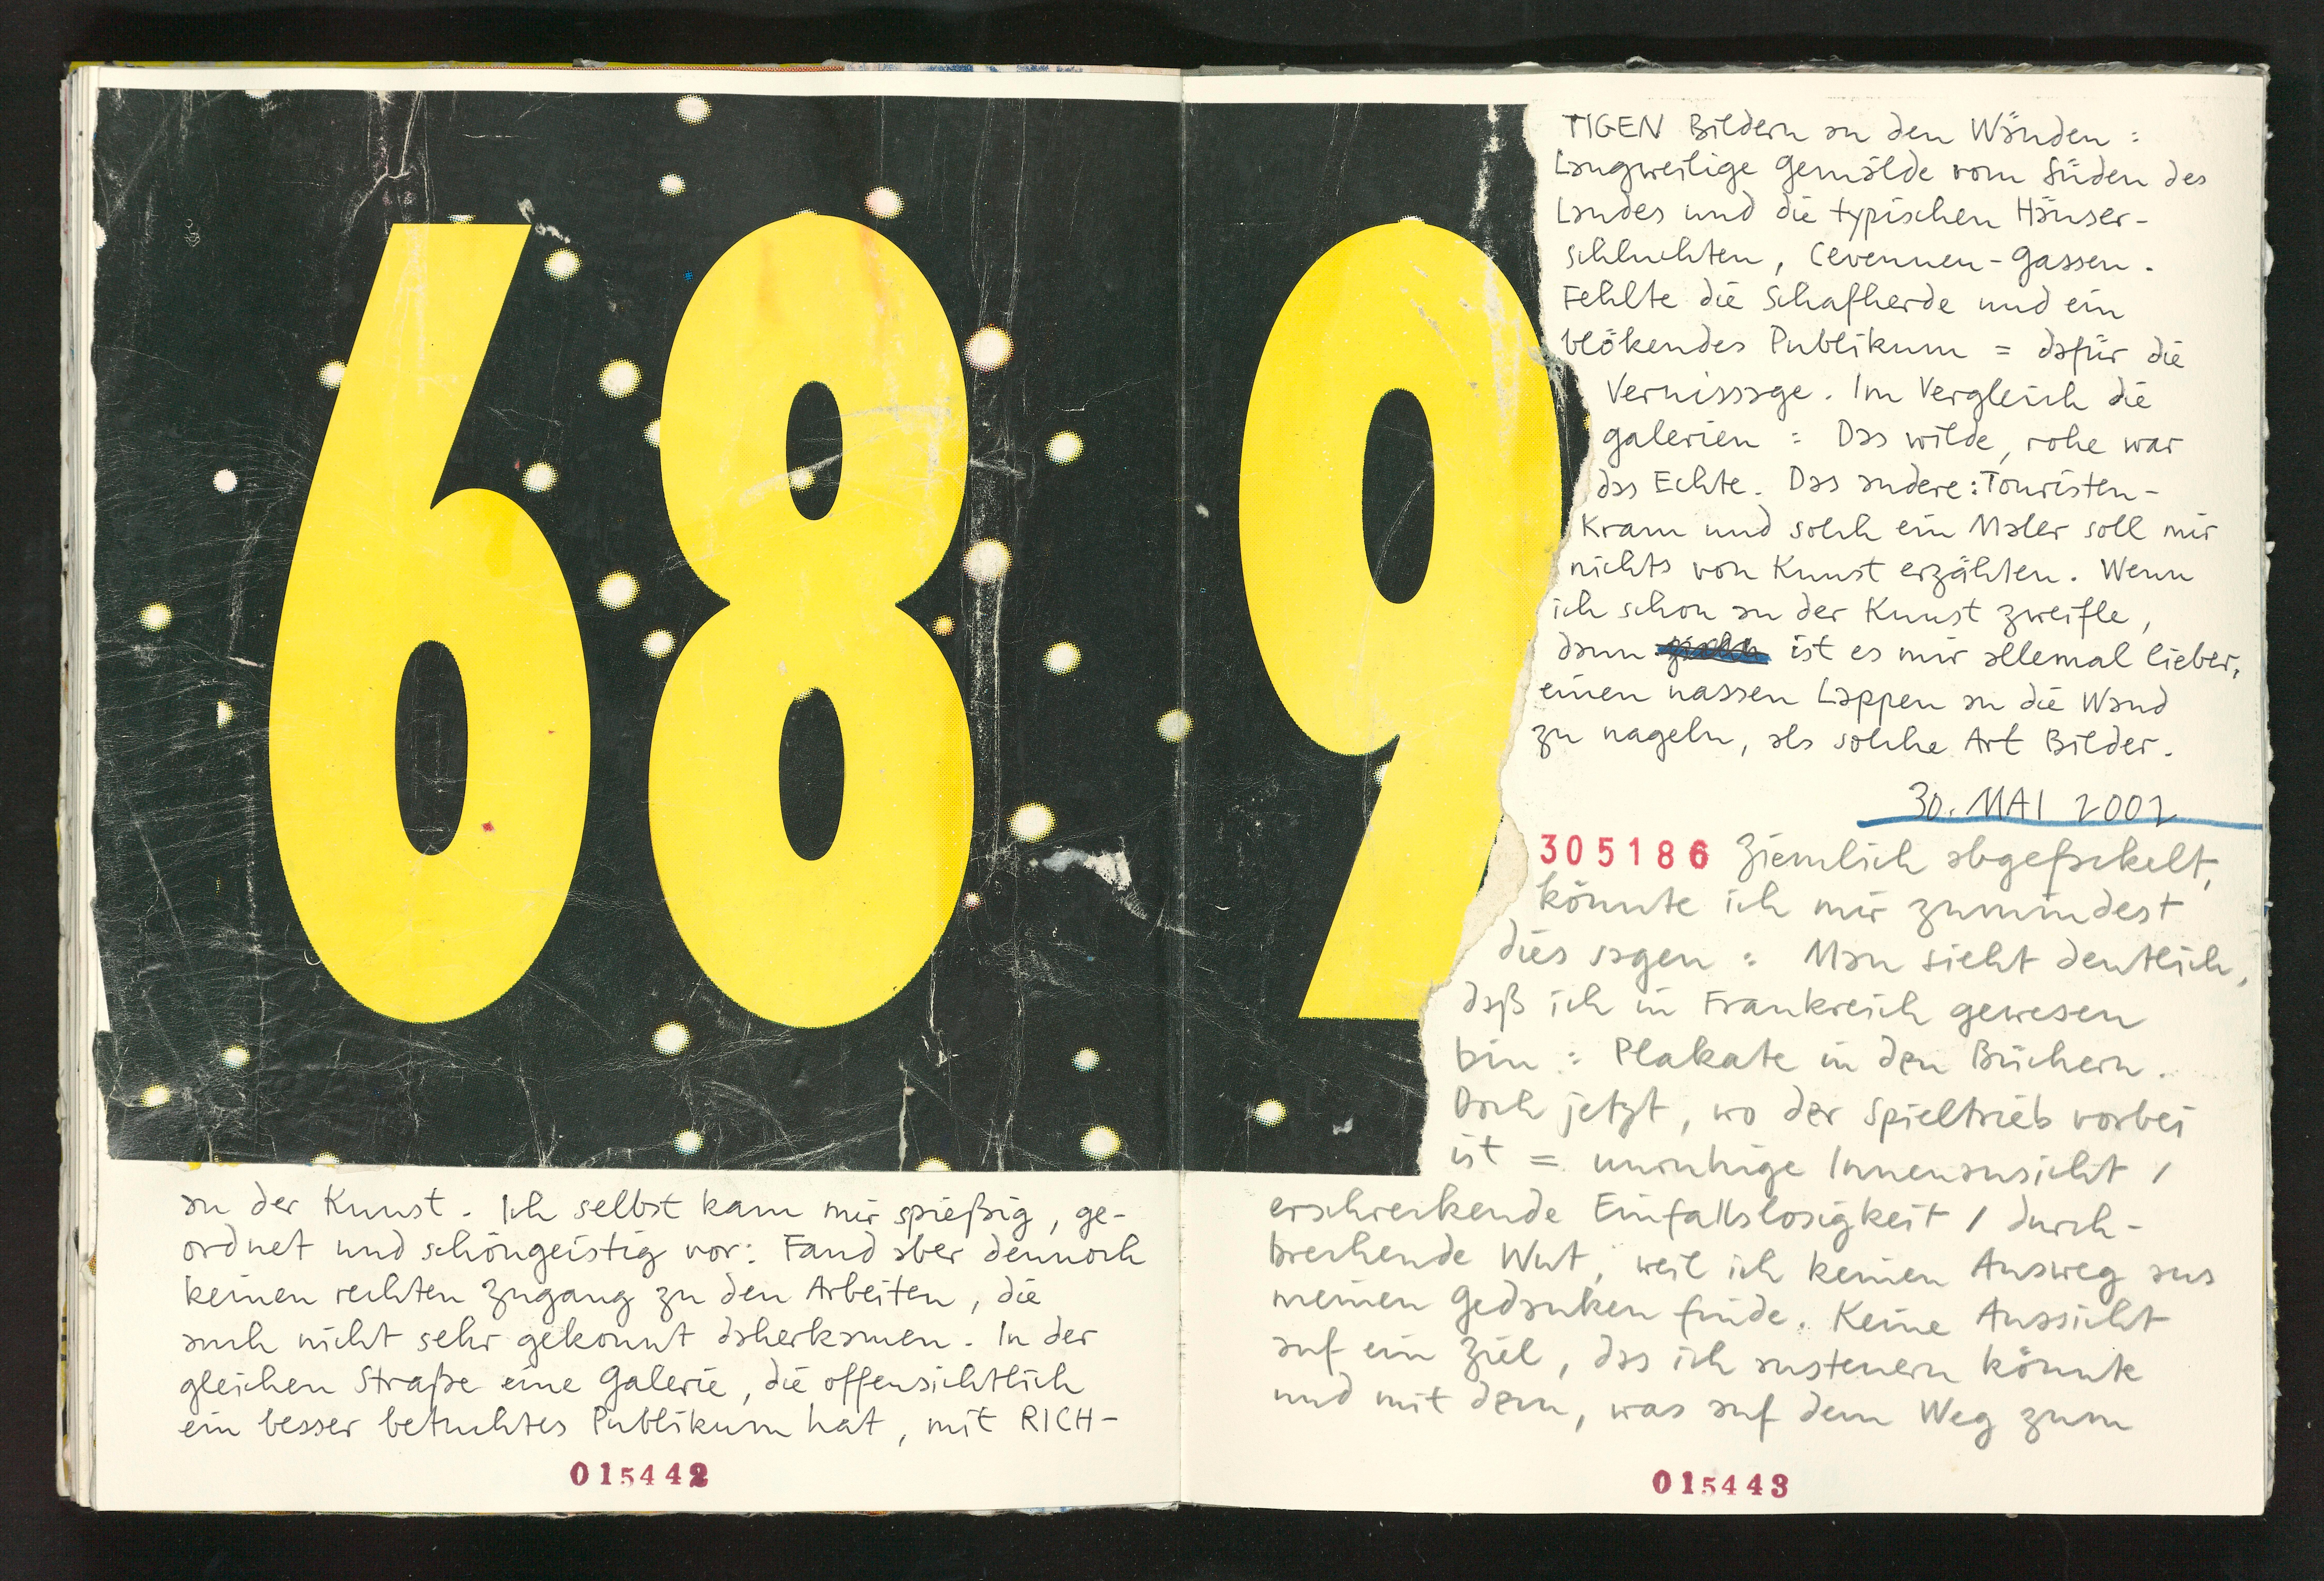 689
an der Kunst. Ich selbst kam mir spießig, ge-
ordnet und schöngeistig vor: Fand aber dennoch
keinen rechten Zugang zu den Arbeiten, die
auch nicht sehr gekonnt daherkamen. In der
gleichen Straße eine Galerie, die offensichtlich
ein besser betuchtes Publikum hat, mit RICH-
015442
TIGEN Bildern an den Wänden:
Langweilige Gemälde vom Süden des
Landes und die typischen Häuser-
schluchten, Cevennen-Gassen.
Fehlte die Schafherde und ein
blökendes Publikum = dafür die
Vernissage. Im Vergleich die
Galerien: Das wilde, rohe war
das Echte. Das andere: Touristen-
Kram und solch ein Maler soll mir
nichts von Kunst erzählen. Wenn
ich schon an der Kunst zweifle,
dann ist es mir allemal lieber,
einen nassen Lappen an die Wand
zu nageln, als solche Art Bilder.
30. MAI 2002
305186 Ziemlich abgefackelt,
könnte ich mir zumindest
dies sagen: Man sieht deutlich,
daß ich in Frankreich gewesen
bin: Plakate in den Büchern.
Doch jetzt, wo der Spieltrieb vorbei
ist = unruhige Innenansicht /
erschreckende Einfallslosigkeit / durch-
brechende Wut, weil ich keinen Ausweg aus
meinen Gedanken finde. Keine Aussicht
auf ein Ziel, das ich ansteuern könnte
und mit dem, was auf dem Weg zum
015443